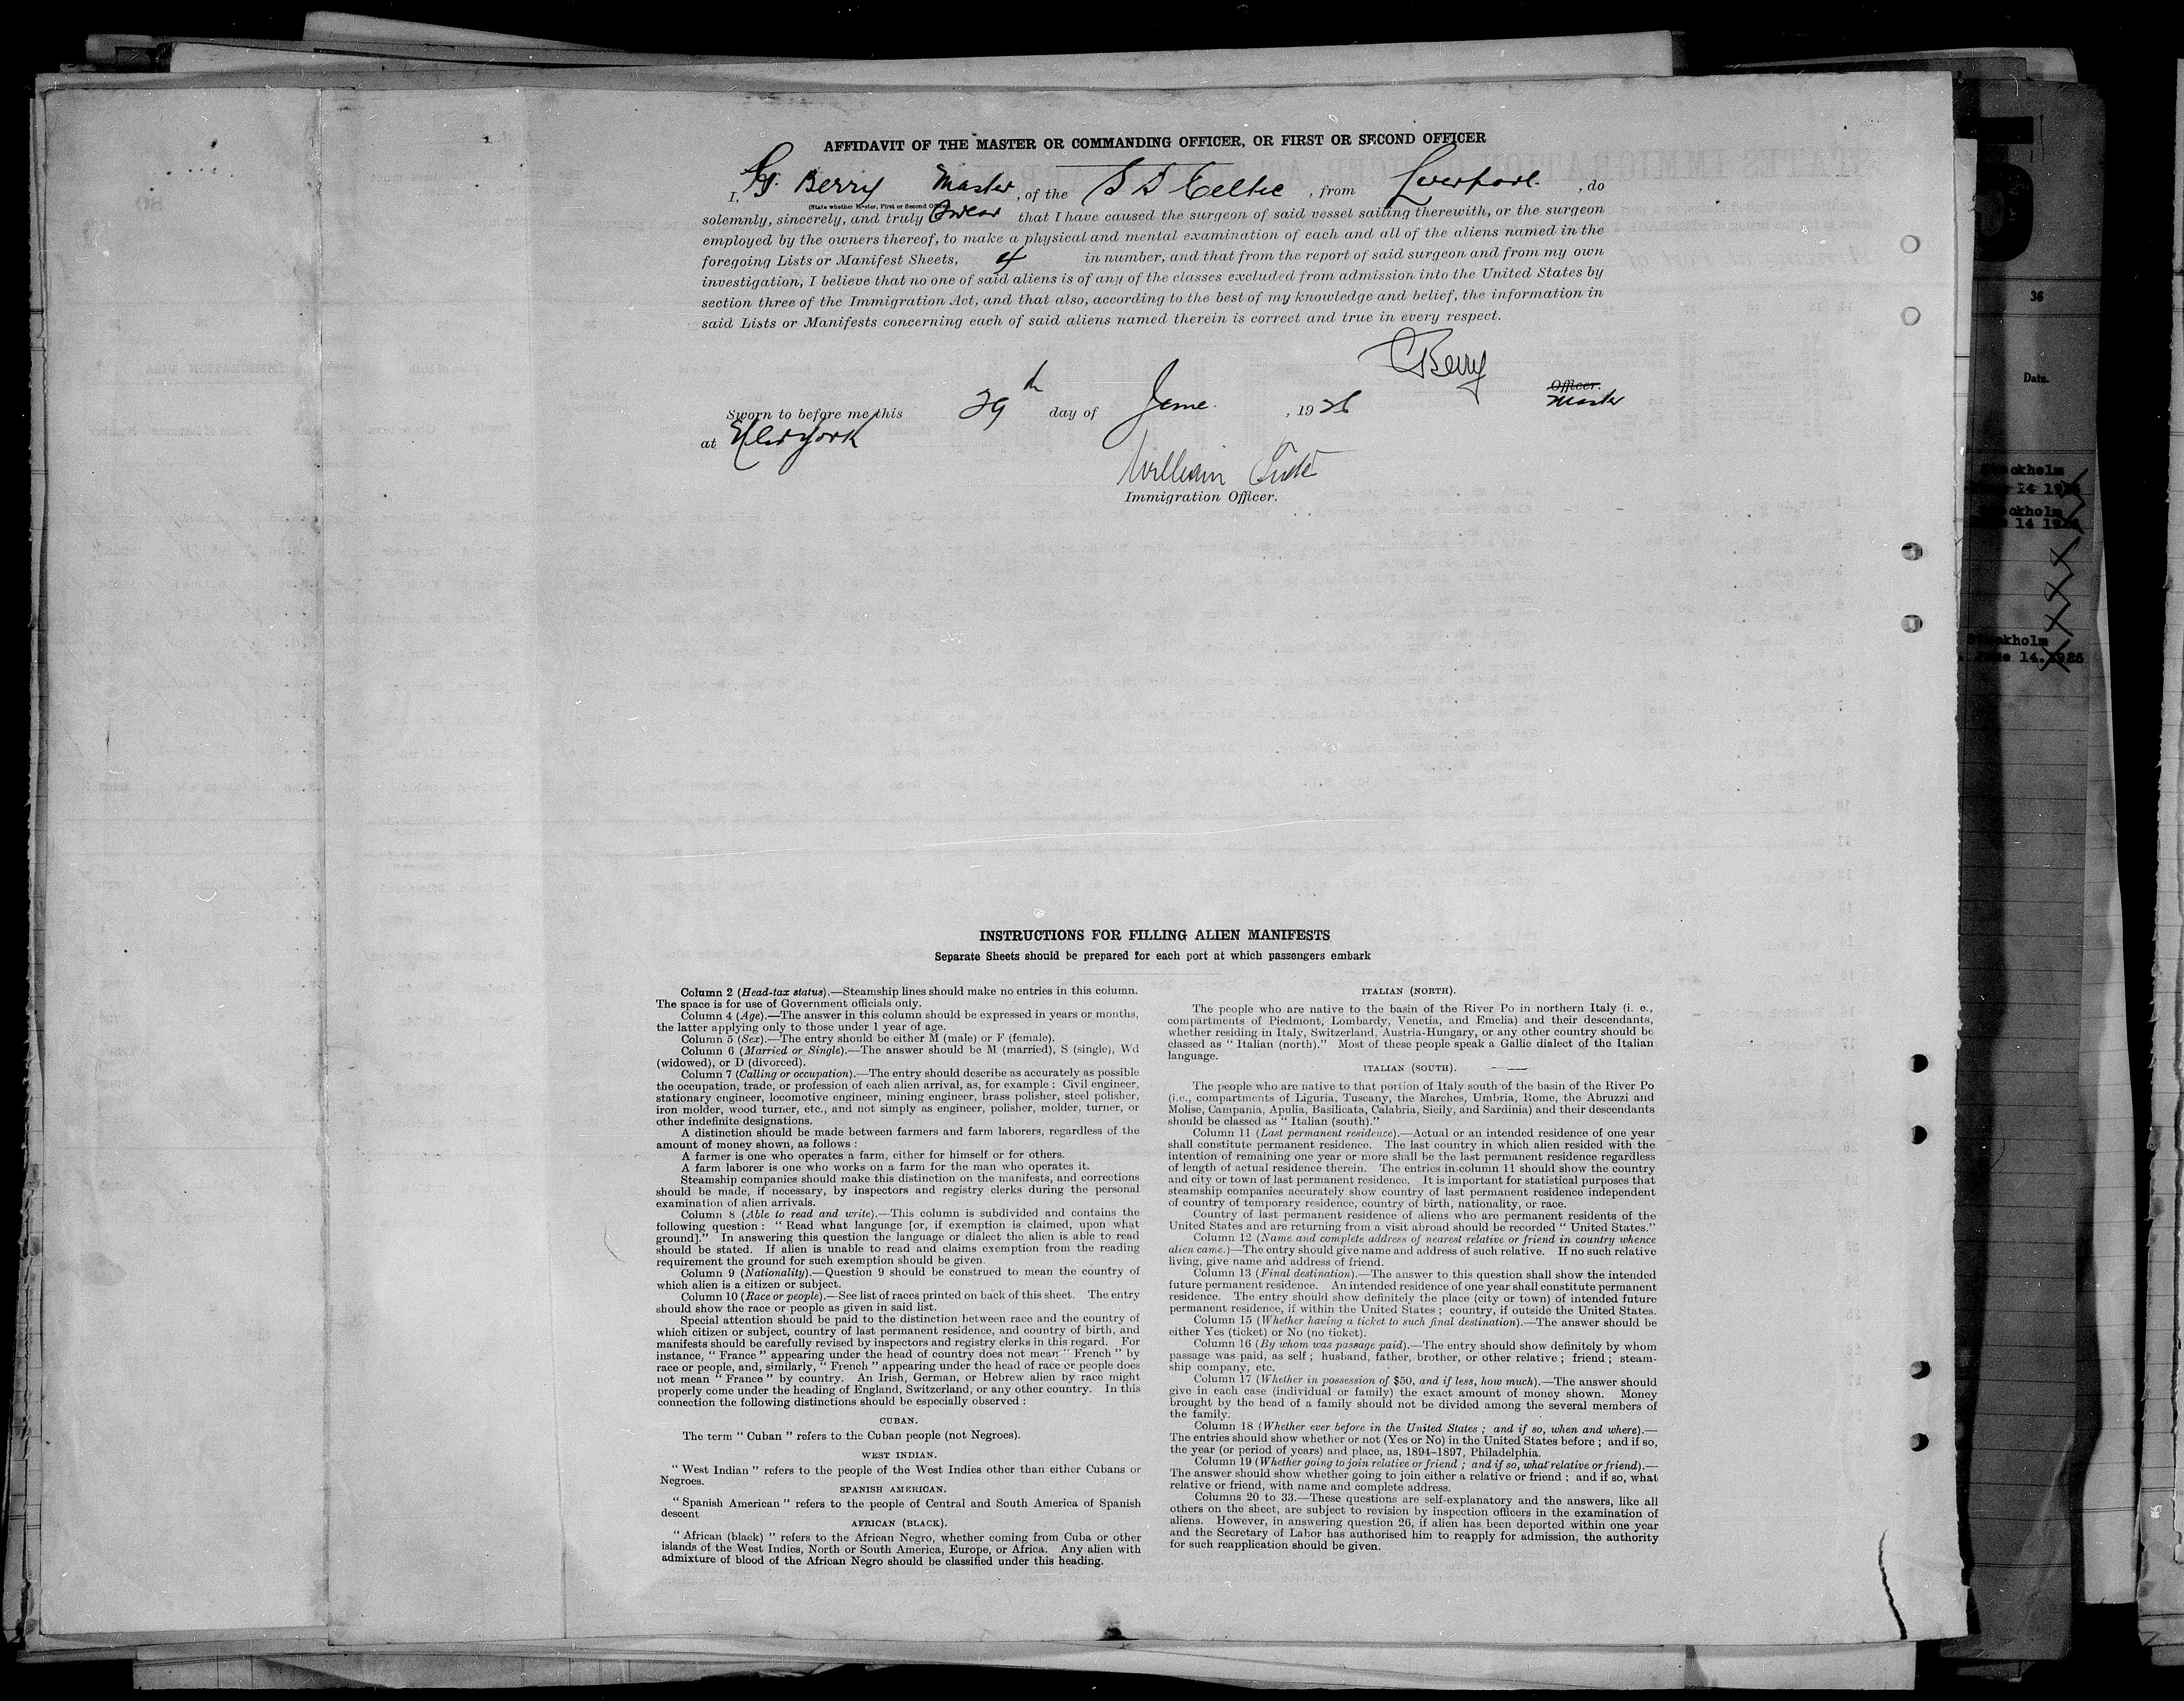 AFFIDAVIT OF THE MASTER OR COMMANDING OFFICER, OR FIRST OR SECOND OFFICER
I, G. Berry Master, of the S S Celtic, from Liverpool., do
(State whether Master, First or Second Officer)
solemnly, sincerely, and truly Swear that I have caused the surgeon of said vessel sailing therewith, or the surgeon
employed by the owners thereof, to make a physical and mental examination of each and all of the aliens named in the
foregoing Lists or Manifest Sheets, 4 in number, and that from the report of said surgeon and from my own
investigation, I believe that no one of said aliens is of any of the classes excluded from admission into the United States by
section three of the Immigration Act, and that also, according to the best of my knowledge and belief, the information in
said Lists or Manifests concerning each of said aliens named therein is correct and true in every respect.
Berry
Officer.
Master
Sworn to before me this 29th day of June., 1926
at New York
William
Immigration Officer.
INSTRUCTIONS FOR FILLING ALIEN MANIFESTS
Separate Sheets should be prepared for each port at which passengers embark
Column 2 (Head-tax status).—Steamship lines should make no entries in this column.
The space is for use of Government officials only.
Column 4 (Age).—The answer in this column should be expressed in years or months,
the latter applying only to those under 1 year of age.
Column 5 (Sex).—The entry should be either M (male) or F (female).
Column 6 (Married or Single).—The answer should be M (married), S (single), Wd
(widowed), or D (divorced).
Column 7 (Calling or occupation).—The entry should describe as accurately as possible
the occupation, trade, or profession of each alien arrival, as, for example : Civil engineer,
stationary engineer, locomotive engineer, mining engineer, brass polisher, steel polisher,
iron molder, wood turner, etc., and not simply as engineer, polisher, molder, turner, or
other indefinite designations.
A distinction should be made between farmers and farm laborers, regardless of the
amount of money shown, as follows :
A farmer is one who operates a farm, either for himself or for others.
A farm laborer is one who works on a farm for the man who operates it.
Steamship companies should make this distinction on the manifests, and corrections
should be made, if necessary, by inspectors and registry clerks during the personal
examination of alien arrivals.
Column 8 (Able to read and write).—This column is subdivided and contains the
following question : “ Read what language [or, if exemption is claimed, upon what
ground].” In answering this question the language or dialect the alien is able to read
should be stated. If alien is unable to read and claims exemption from the reading
requirement the ground for such exemption should be given.
Column 9 (Nationality).—Question 9 should be construed to mean the country of
which alien is a citizen or subject.
Column 10 (Race or people).—See list of races printed on back of this sheet. The entry
should show the race or people as given in said list.
Special attention should be paid to the distinction between race and the country of
which citizen or subject, country of last permanent residence, and country of birth, and
manifests should be carefully revised by inspectors and registry clerks in this regard. For
instance, “ France ” appearing under the head of country does not mean “ French ” by
race or people, and, similarly, “ French ” appearing under the head of race or people does
not mean “ France ” by country. An Irish, German, or Hebrew alien by race might
properly come under the heading of England, Switzerland, or any other country. In this
connection the following distinctions should be especially observed :
CUBAN.
The term “ Cuban ” refers to the Cuban people (not Negroes).
WEST INDIAN.
“ West Indian ” refers to the people of the West Indies other than either Cubans or
Negroes.
SPANISH AMERICAN.
“ Spanish American ” refers to the people of Central and South America of Spanish
descent
AFRICAN (BLACK).
“ African (black) ” refers to the African Negro, whether coming from Cuba or other
islands of the West Indies, North or South America, Europe, or Africa. Any alien with
admixture of blood of the African Negro should be classified under this heading.
ITALIAN (NORTH).
The people who are native to the basin of the River Po in northern Italy (i. e.,
compartments of Piedmont, Lombardy, Venetia, and Emelia) and their descendants,
whether residing in Italy, Switzerland, Austria-Hungary, or any other country should be
classed as “ Italian (north).” Most of these people speak a Gallic dialect of the Italian
language.
ITALIAN (SOUTH).
The people who are native to that portion of Italy south of the basin of the River Po
(i.e., compartments of Liguria, Tuscany, the Marches, Umbria, Rome, the Abruzzi and
Molise, Campania, Apulia, Basilicata, Calabria, Sicily, and Sardinia) and their descendants
should be classed as “ Italian (south).”
Column 11 (Last permanent residence).—Actual or an intended residence of one year
shall constitute permanent residence. The last country in which alien resided with the
intention of remaining one year or more shall be the last permanent residence regardless
of length of actual residence therein. The entries in column 11 should show the country
and city or town of last permanent residence. It is important for statistical purposes that
steamship companies accurately show country of last permanent residence independent
of country of temporary residence, country of birth, nationality, or race.
Country of last permanent residence of aliens who are permanent residents of the
United States and are returning from a visit abroad should be recorded “ United States.”
Column 12 (Name and complete address of nearest relative or friend in country whence
alien came.)—The entry should give name and address of such relative. If no such relative
living, give name and address of friend.
Column 13 (Final destination).—The answer to this question shall show the intended
future permanent residence. An intended residence of one year shall constitute permanent
residence. The entry should show definitely the place (city or town) of intended future
permanent residence, if within the United States ; country, if outside the United States.
Column 15 (Whether having a ticket to such final destination).—The answer should be
either Yes (ticket) or No (no ticket).
Column 16 (By whom was passage paid).—The entry should show definitely by whom
passage was paid, as self ; husband, father, brother, or other relative ; friend ; steam-
ship company, etc.
Column 17 (Whether in possession of $50, and if less, how much).—The answer should
give in each case (individual or family) the exact amount of money shown. Money
brought by the head of a family should not be divided among the several members of
the family.
Column 18 (Whether ever before in the United States ; and if so, when and where).—
The entries should show whether or not (Yes or No) in the United States before ; and if so,
the year (or period of years) and place, as, 1894–1897, Philadelphia.
Column 19 (Whether going to join relative or friend ; and if so, what relative or friend).—
The answer should show whether going to join either a relative or friend ; and if so, what
relative or friend, with name and complete address.
Columns 20 to 33.—These questions are self-explanatory and the answers, like all
others on the sheet, are subject to revision by inspection officers in the examination of
aliens. However, in answering question 26, if alien has been deported within one year
and the Secretary of Labor has authorised him to reapply for admission, the authority
for such reapplication should be given.
36
Date.
Stockholm
14 1926
Stockholm
14 1926
Stockholm
June 14.1926